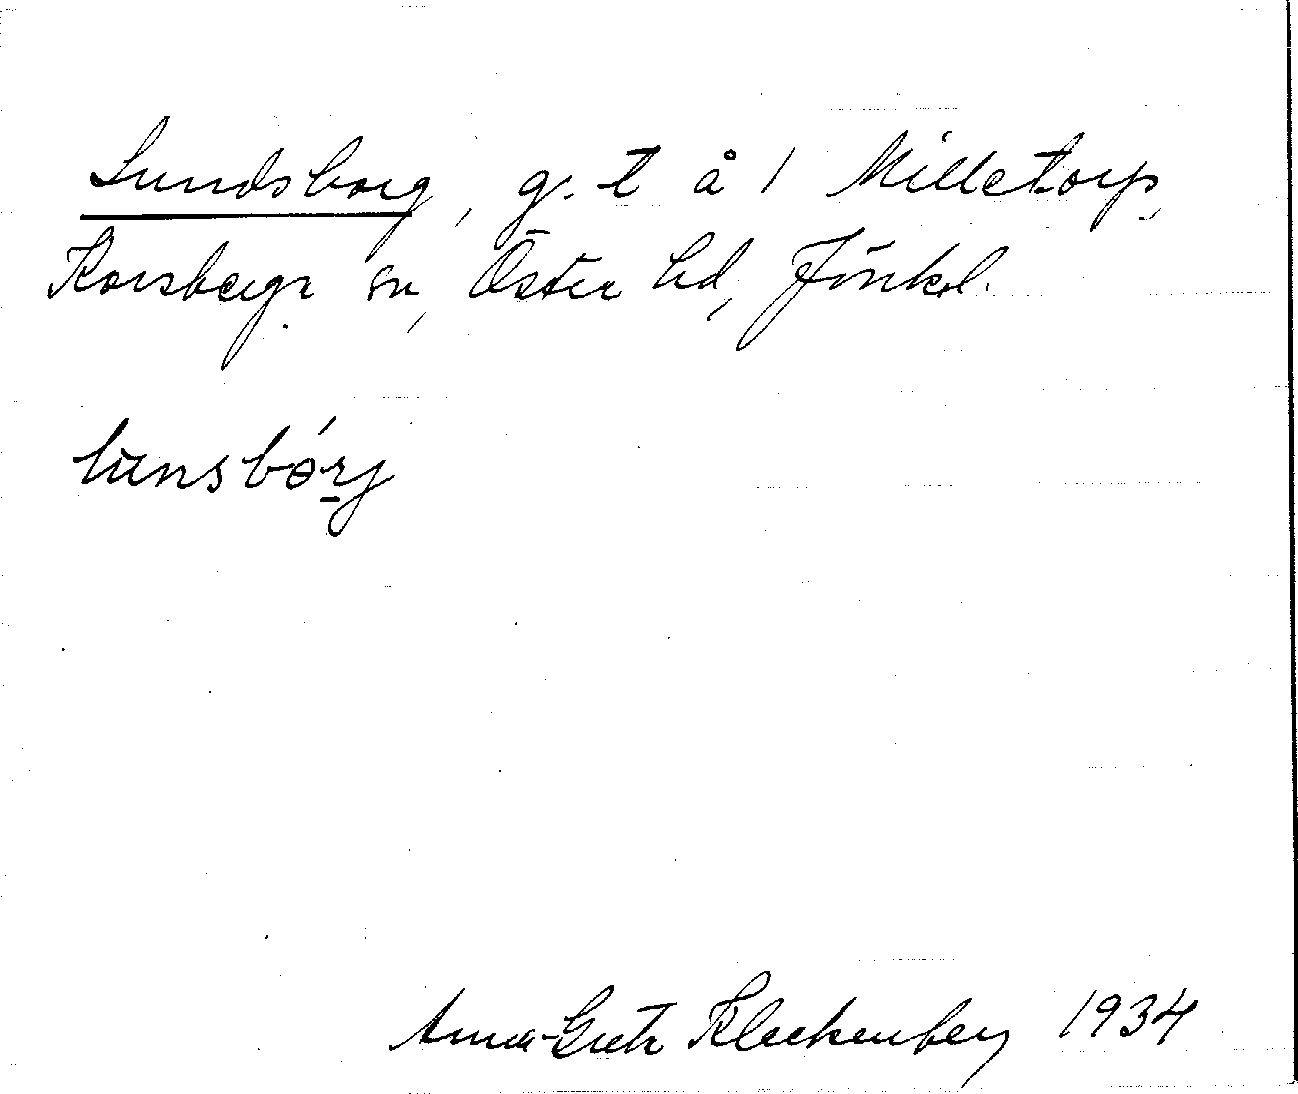 Lundsborg, g. t å 1 Milletorp,
Korsberga sn, Östra hd, Jönk.l.
lunsbórj
Anna-Greta Kleckenberg 1934